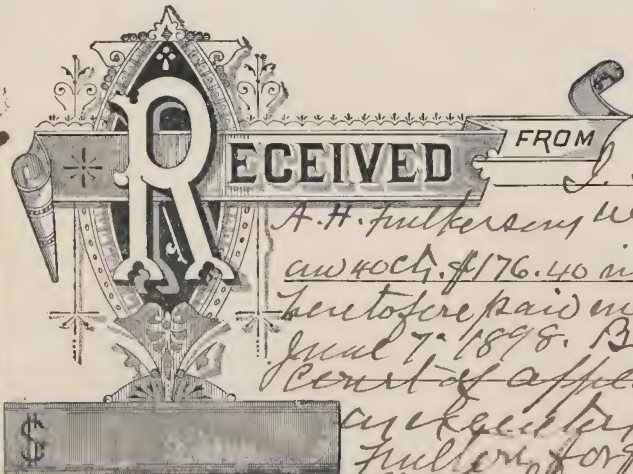 RECEIVED FROM
A. H. Fulkerson
and 40 cts. $176.40 in
heretofore paid m
June 7. 1898. B
court of appe
an executor